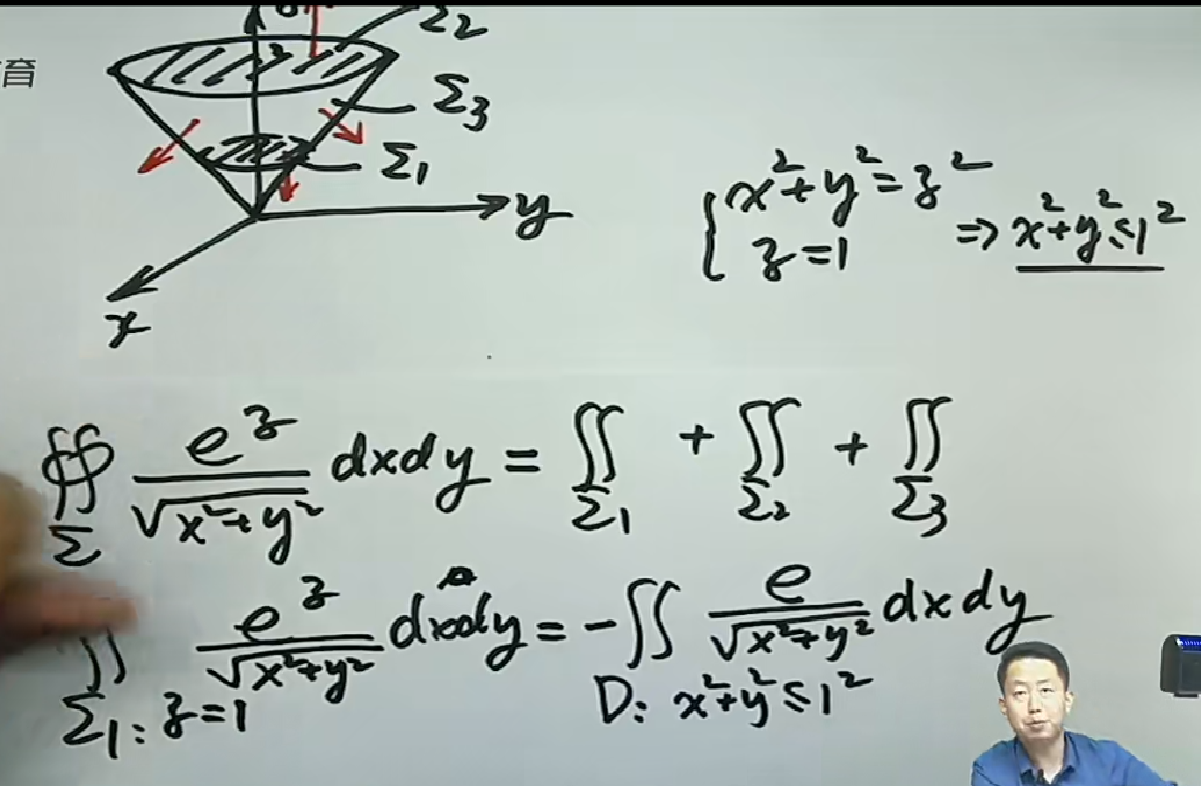 Σ2
育
Σ3
Σ1
y
x
{ x²+y²=z²
z=1 ⇒ x²+y²≤1²
∯_Σ e^z/√(x²+y²) dxdy = ∬_Σ1 + ∬_Σ2 + ∬_Σ3
∬_{Σ1: z=1} e^z/√(x²+y²) dxdy = -∬_{D: x²+y²≤1²} e/√(x²+y²) dxdy